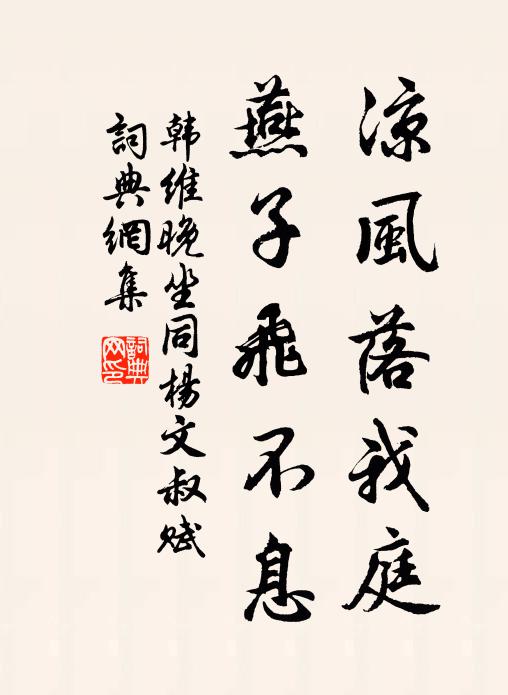 涼風落我庭
燕子飛不息
韩維晚坐同楊文叔赋
詞典網集
詞典網印